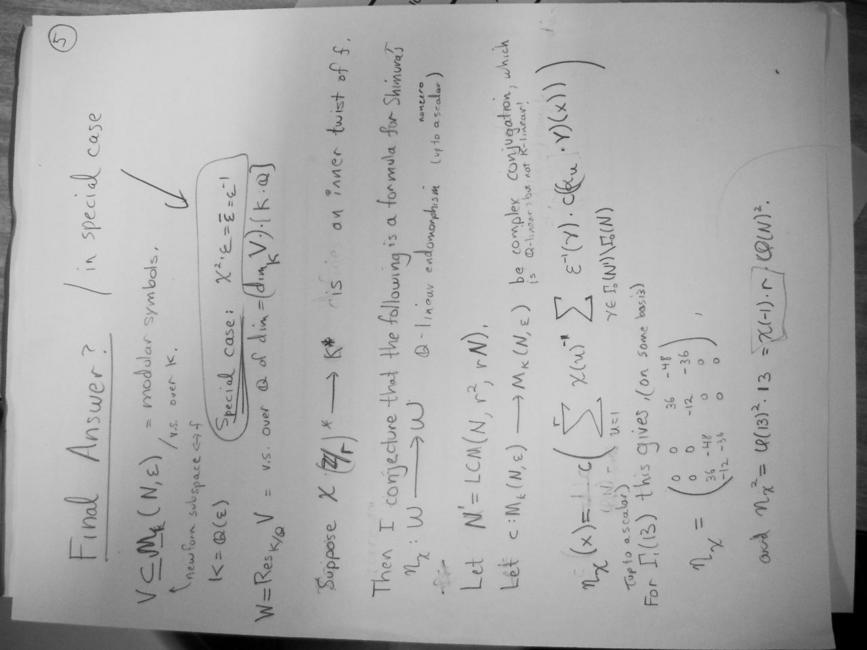 5
Final Answer? / in special case
V ⊆ M_k(N,ε) = modular symbols.
newform subspace ↔ f / v.s. over K.
K = Q(ε)
Special case: χ², ε = ε̄ = ε⁻¹
W = Res_{K/Q} V = v.s. over Q of dim = (dim_K V)·[K:Q]
Suppose χ (Z/r)* → K* is an inner twist of f.
Then I conjecture that the following is a formula for Shimura's
η_χ : W → W Q-linear endomorphism (up to a nonzero scalar)
Let N' = LCM(N, r², rN).
Let c: M_k(N,ε) → M_k(N,ε) be complex conjugation, which
is Q-linear but not K-linear!
η_χ(x) = c( Σ_{u=1}^{r} χ(u)^{-1} Σ_{γ∈Γ₀(N')\Γ₀(N)} ε⁻¹(γ)·c((α_u·γ)(x)) )
(up to a scalar)
For Γ₁(13) this gives, (on some basis)
η_χ = ( 0 0 36 -48
0 0 -12 -36
36 -48 0 0
-12 -36 0 0 ) ,
and η_χ² = φ(13)²·13 = χ(-1)·r φ(N)².